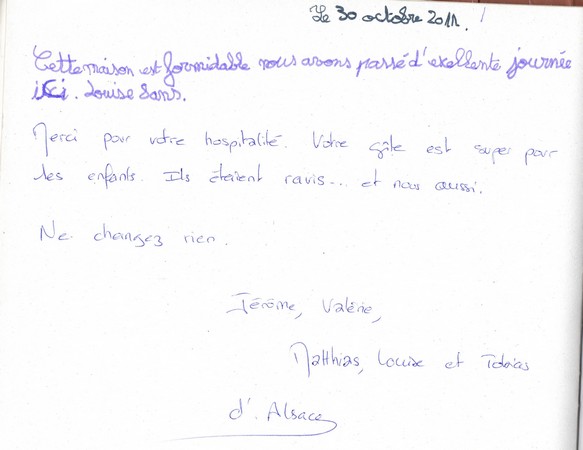 Le 30 octobre 2011.
Cette maison est formidable nous avons passé d'exellente journée
ici. Louise Sans.
Merci pour votre hospitalité. Votre gîte est super pour
les enfants. Ils étaient ravis... et nous aussi.
Ne changez rien.
Jérôme, Valérie,
Matthias, Louise et Tobias
d'Alsace